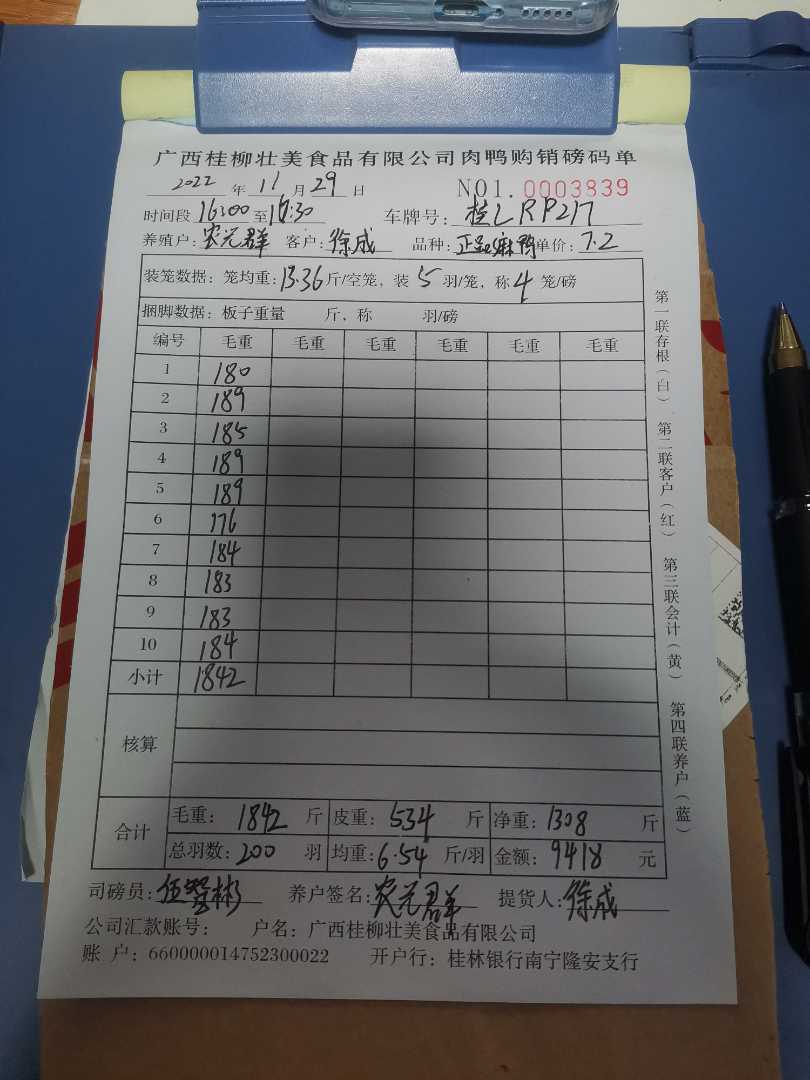 广西桂柳壮美食品有限公司肉鸭购销磅码单
2022 年 11 月 29 日 NO1. 0003839
时间段 16:00 至 16:30 车牌号: 桂LRP217
养殖户: 农元群 客户: 徐成 品种: 正 麻鸭 单价: 7.2
装笼数据: 笼均重: 13.36 斤/空笼, 装 5 羽/笼, 称 4 笼/磅
捆脚数据: 板子重量 斤, 称 羽/磅
编号 毛重 毛重 毛重 毛重 毛重 毛重
1 180
2 189
3 185
4 189
5 189
6 176
7 184
8 183
9 183
10 184
小计 1842
核算
合计 毛重: 1842 斤 皮重: 534 斤 净重: 1308 斤
总羽数: 200 羽 均重: 6.54 斤/羽 金额: 9418 元
司磅员: 伍 彬 养户签名: 农元群 提货人: 徐成
公司汇款账号: 户名: 广西桂柳壮美食品有限公司
账 户: 660000014752300022 开户行: 桂林银行南宁隆安支行
第一联存根(白) 第二联客户(红) 第三联会计(黄) 第四联养户(蓝)